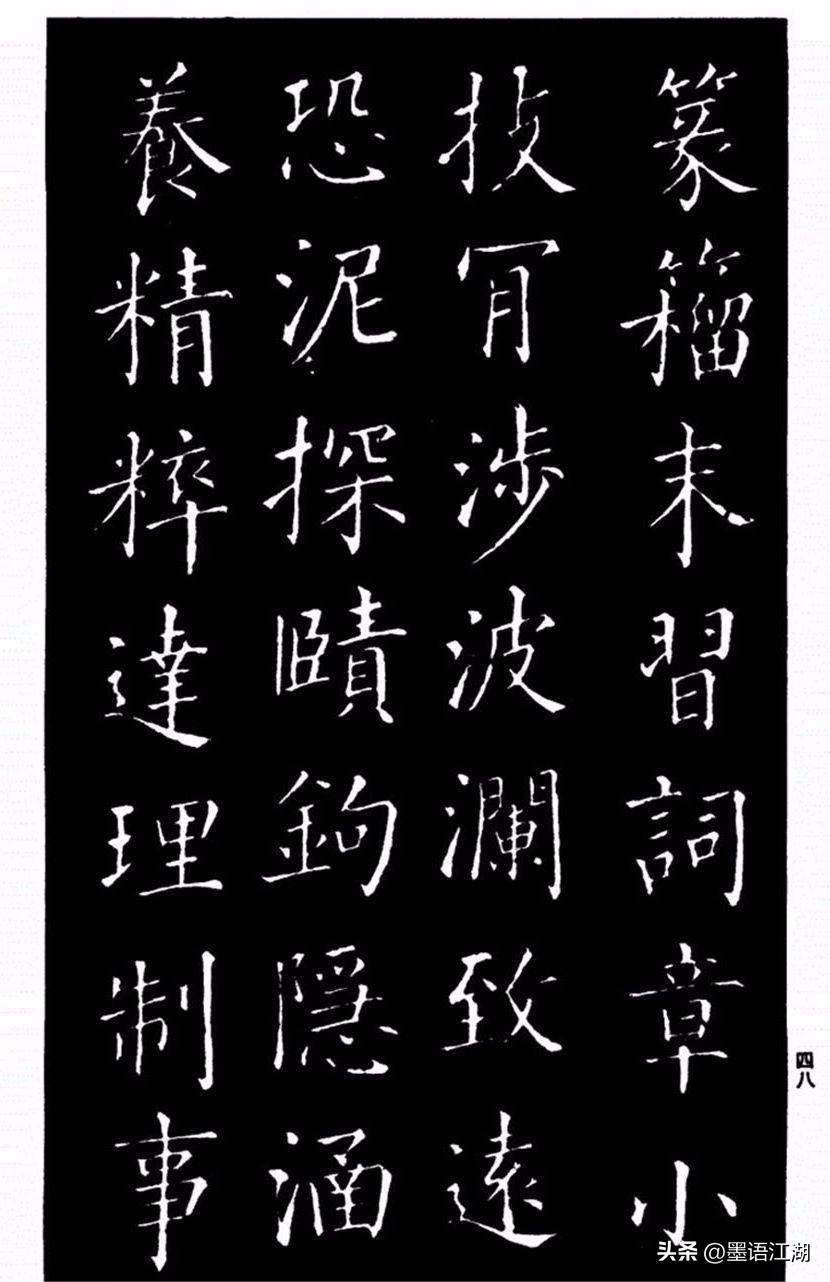 篆籕末習詞章小
技肎涉波瀾致遠
恐泥探賾鉤隱涵
養精粹達理制事
四八
头条 @墨语江湖